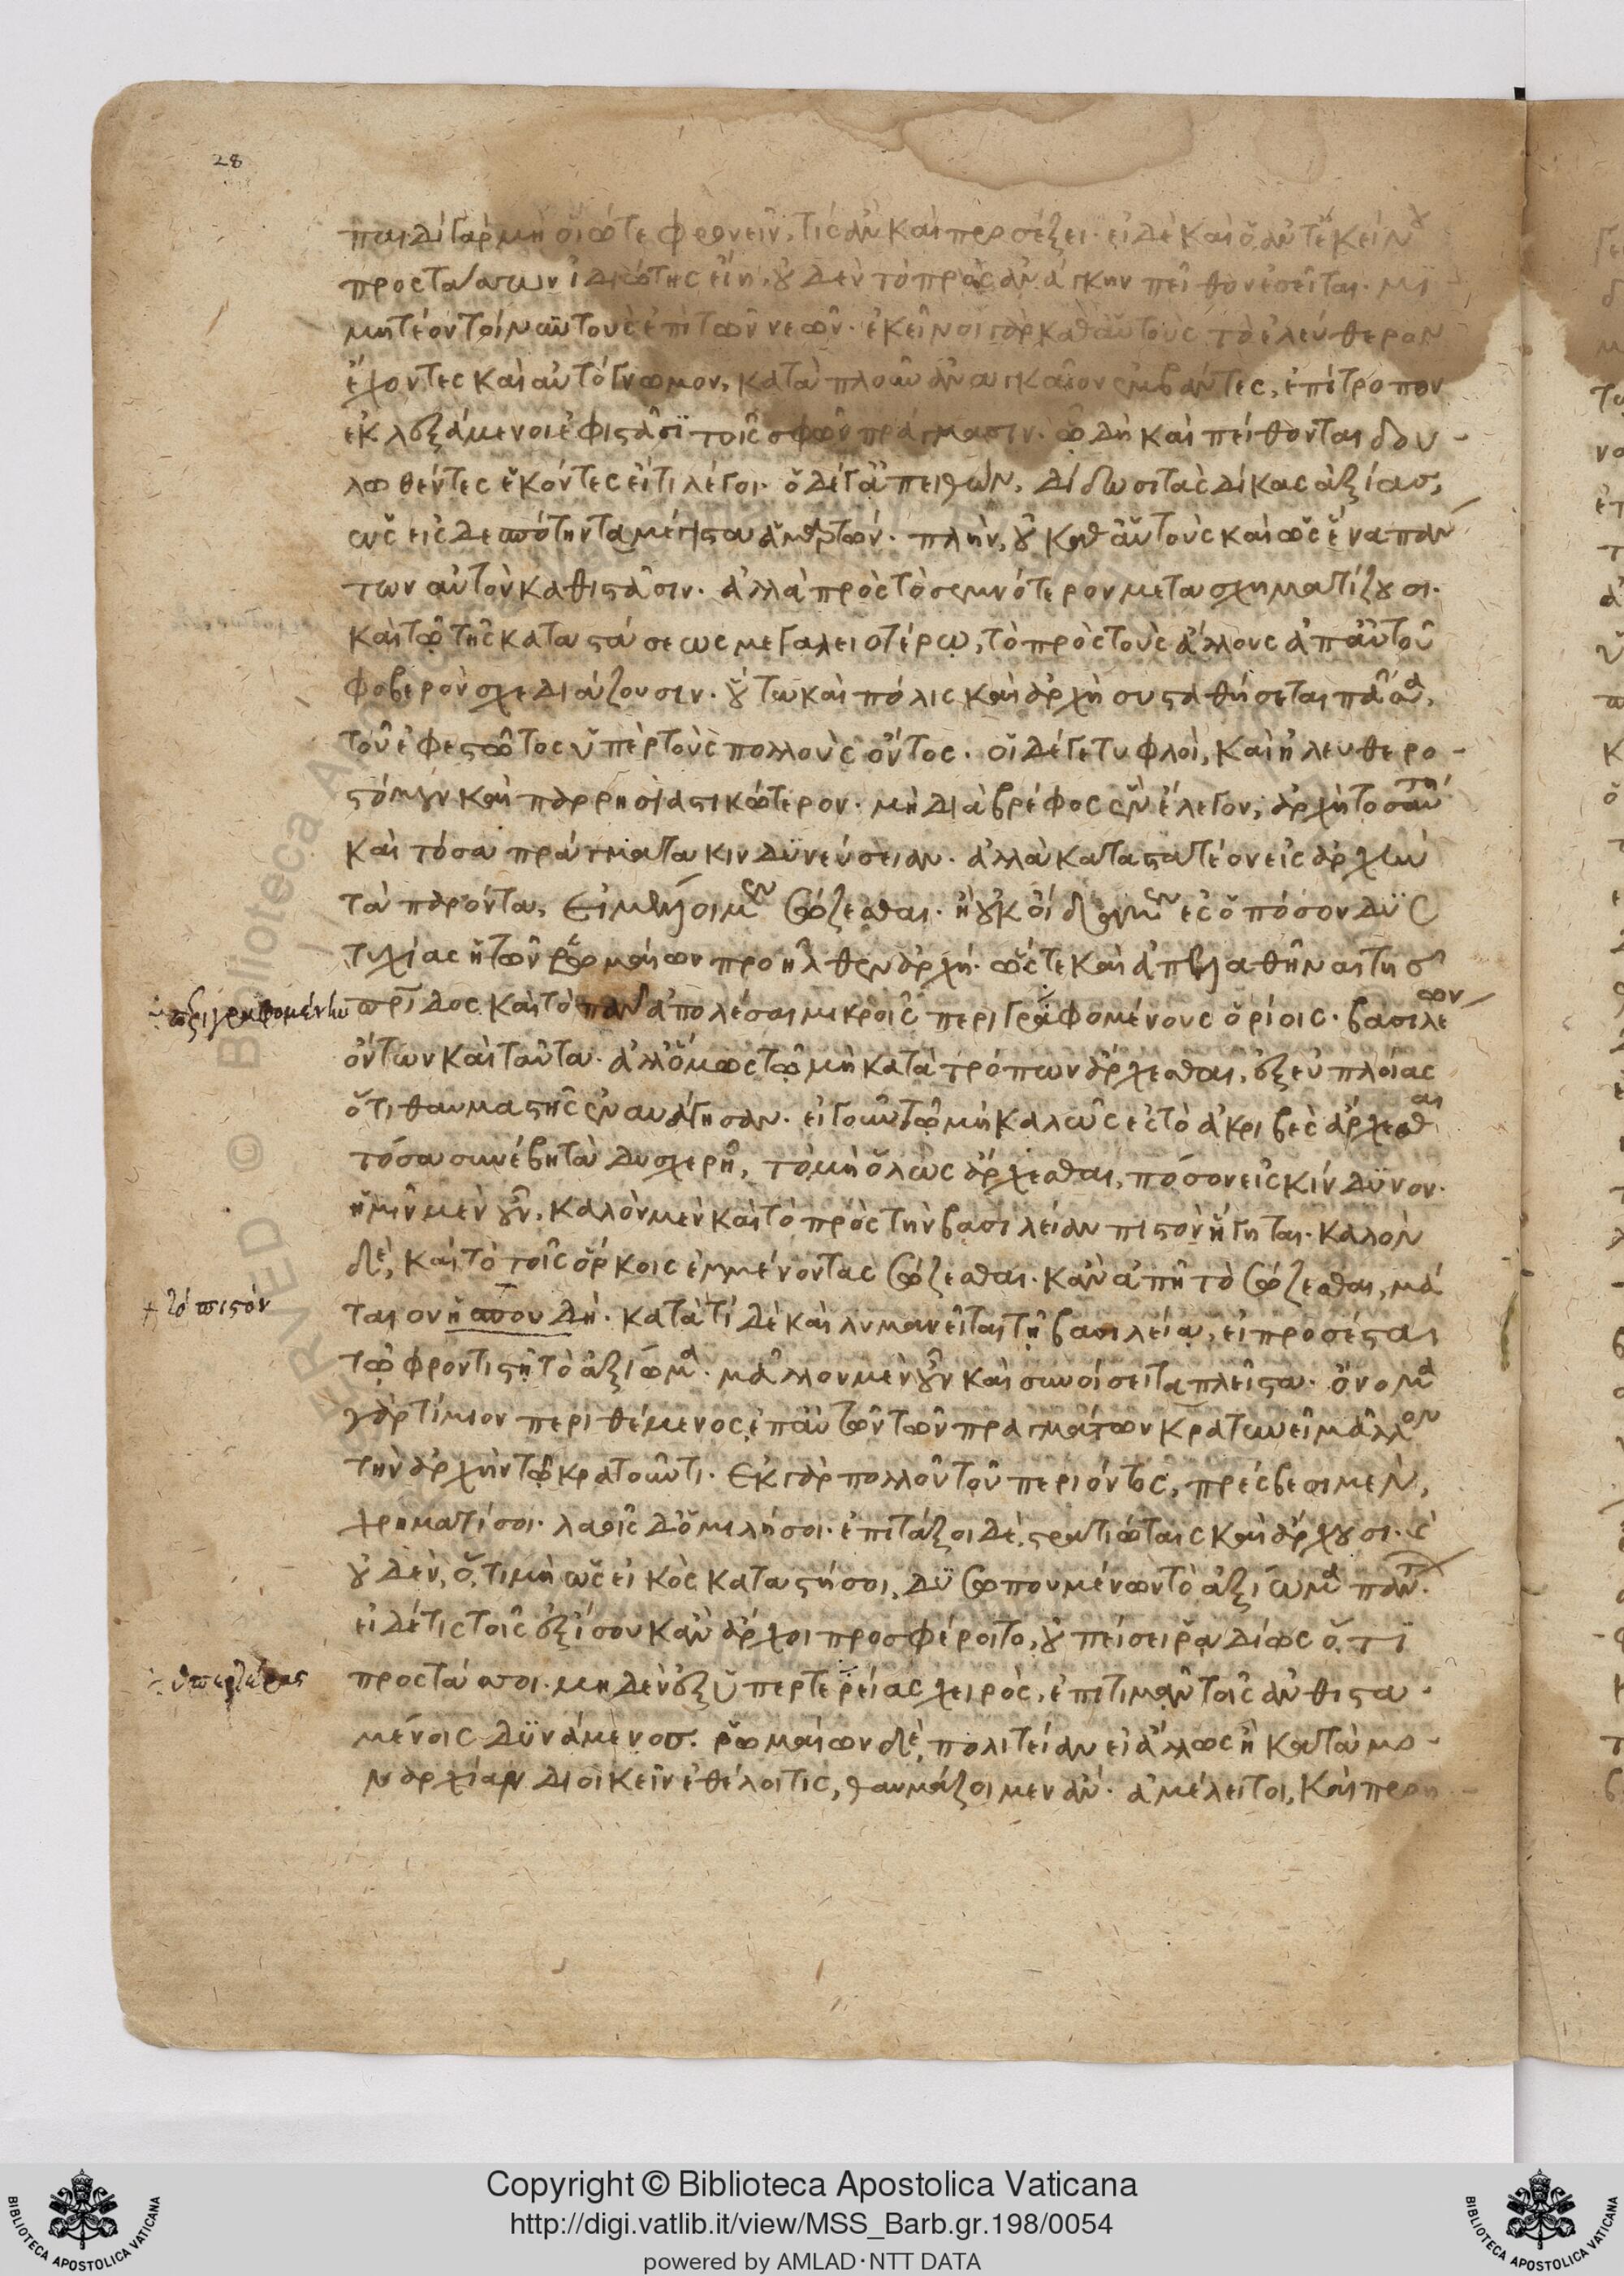 28
παιδὶ γὰρ μὴ οἵω τε φρονεῖν, τίς ἂν καὶ προσέξει. εἰ δὲ καὶ ὁ ἀντ' ἐκείνου
προστάσσων ἰδιώτης εἴη, οὐδὲν τὸ πρὸς ἀνάγκην πεῖθον ἐσεῖται. μι
μητέον τοίνυν τοὺς ἐπὶ τῶν νεῶν. ἐκεῖνοι γὰρ καθ' αὑτοὺς τὸ ἐλεύθερον
ἔχοντες καὶ αὐτόγνωμον, κατὰ πλοῦν ἀναγκαῖον ἐμβάντες, ἐπίτροπον
ἐκλεξάμενοι ἐφιστᾶσι τοῖς σφῶν πράγμασιν. ᾧ δὴ καὶ πείθονται δου-
λωθέντες ἑκόντες εἴ τι λέγοι. ὁ δέ γ' ἀπειθῶν, δίδωσι τὰς δίκας ἀξίας,
ὡς εἰς δεσπότην τὰ μέγιστα ἁμαρτών. πλὴν, οὐ καθ' αὑτοὺς καὶ ὡς ἕνα πάν
των αὐτὸν καθιστᾶσιν. ἀλλὰ πρὸς τὸ σεμνότερον μετασχηματίζουσι.
καὶ τῷ τῆς καταστάσεως μεγαλειοτέρῳ, τὸ πρὸς τοὺς ἄλλους ἀπ' αὐτοῦ
φοβερὸν σχεδιάζουσιν. οὕτω καὶ πόλις καὶ ἀρχὴ συσταθήσεται πᾶσα,
τοῦ ἐφεστῶτος ὑπὲρ τοὺς πολλοὺς ὄντος. οἱ δέ γε τυφλοὶ, καὶ ἠλευθερο-
στόμουν καὶ παρρησιαστικώτερον. μὴ διὰ βρέφος ἓν ἔλεγον, ἀρχὴ τοσαύτη
καὶ τόσα πράγματα κινδυνεύσειαν. ἀλλὰ καταστατέον εἰς ἀρχὴν
τὰ παρόντα, εἰ μέλλοιμεν σώζεσθαι. ἢ οὐκ οἴδαμεν ἐς ὁπόσον δυσ
τυχίας ἡ τῶν ῥωμαίων προῆλθεν ἀρχή. ὥστε καὶ ἀπελαθῆναι τῆς
πατρίδος καὶ τὸ πᾶν ἀπολέσαι μικροῖς περιγραφομένους ὁρίοις. βασιλε
όντων καὶ ταῦτα. ἀλλ' ὅμως τῷ μὴ κατὰ τρόπων ἄρχεσθαι, ἐξ εὐπλοίας
ὅτι θαυμαστῆς ἐναυάγησαν. εἰ γοῦν τῷ μὴ καλῶς ἐς τὸ ἀκριβὲς ἄρχεσθαι
τόσα συνέβη τὰ δυσχερῆ, τὸ μὴ ὅλως ἄρχεσθαι, πόσον εἰς κίνδυνον.
ἡμῖν μὲν οὖν, καλὸν μὲν καὶ τὸ πρὸς τὴν βασιλείαν πιστὸν ἥγηται. καλὸν
δὲ, καὶ τὸ τοῖς ὅρκοις ἐμμένοντας σώζεσθαι. κἂν ἀπῇ τὸ σώζεσθαι, μά
ταιον ἡ σπουδή. κατὰ τί δὲ καὶ λυμανεῖται τῇ βασιλείᾳ, εἰ προσέσται
τῷ φροντιστῇ τὸ ἀξίωμα. μᾶλλον μὲν οὖν καὶ συνοίσει τὰ πλεῖστα. ὄνομα
γὰρ τίμιον περιθέμενος ἐπ' αὐτῶν τῶν πραγμάτων κρατυνεῖ μᾶλλον
τὴν ἀρχὴν τῷ κρατοῦντι. ἐκ γὰρ πολλοῦ τοῦ περιόντος, πρέσβεσι μὲν,
χρηματίσοι. λαοῖς δ' ὁμιλήσοι. ἐπιτάξοι δὲ, στρατιώταις καὶ ἄρχουσι. καὶ
οὐδὲν, ὅ,τι μὴ ὡς εἰκὸς καταστήσοι, δυσωπουμένων τὸ ἀξίωμα πάντων.
εἰ δέ τις τοῖς ἐξίσου κἂν ἄρχοι προσφέροιτο, οὐ πείσει ῥᾳδίως ὅ,τι
προστάσσοι. μηδὲν ἐξ ὑπερτερείας χειρὸς, ἐπιτιμᾶν τοῖς ἀνθιστα-
μένοις δυνάμενος. ῥωμαίων δὲ, πολιτείαν εἰ ἄλλως ἢ κατὰ μο-
ναρχίαν διοικεῖν ἐθέλοι τις, θαυμάζοιμεν ἄν. ἀμέλει τοι, καὶ περὶ
περιγραφομένων
τὸ πιστόν
ὑπερτέρας
Copyright © Biblioteca Apostolica Vaticana
http://digi.vatlib.it/view/MSS_Barb.gr.198/0054
powered by AMLAD·NTT DATA
BIBLIOTECA APOSTOLICA VATICANA
BIBLIOTECA APOSTOLICA VATICANA